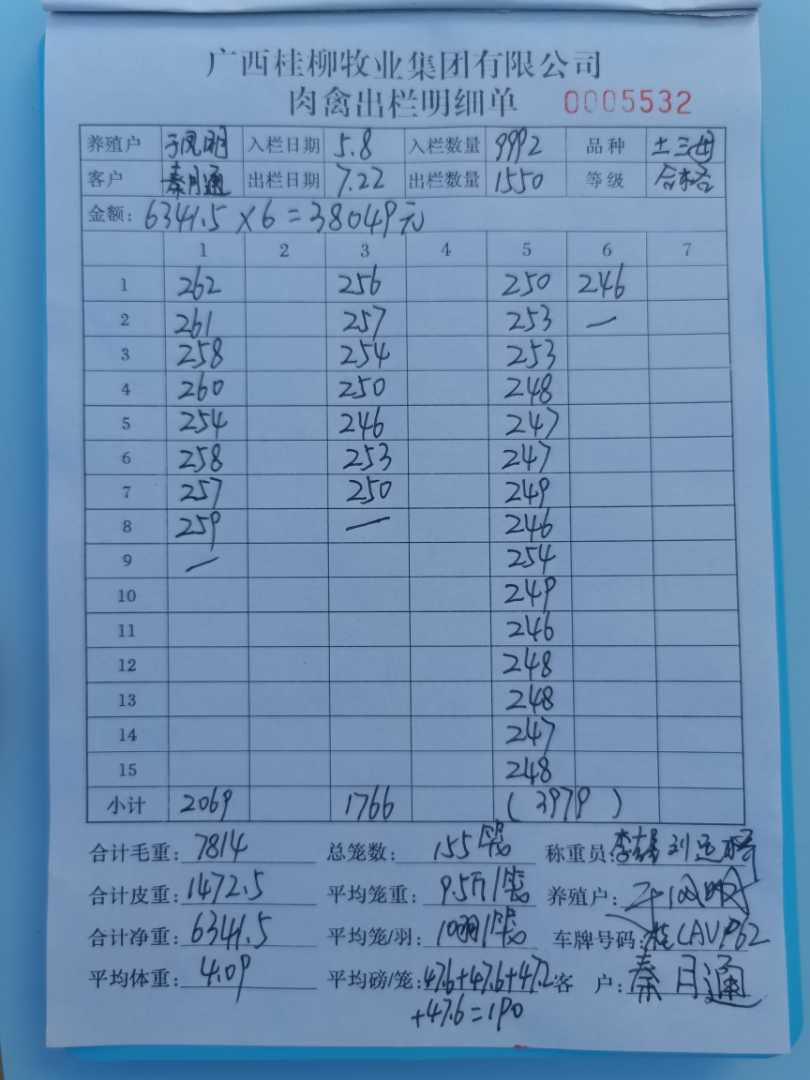 广西桂柳牧业集团有限公司
肉禽出栏明细单 0005532
养殖户 于凤明 入栏日期 5.8 入栏数量 9992 品种 土三母
客户 秦月通 出栏日期 7.22 出栏数量 1550 等级 合格
金额: 6341.5×6=38049元
1 2 3 4 5 6 7
1 262 256 250 246
2 261 257 253 —
3 258 254 253
4 260 250 248
5 254 246 247
6 258 253 247
7 257 250 249
8 259 — 246
9 — 254
10 249
11 246
12 248
13 248
14 247
15 248
小计 2069 1766 (3979)
合计毛重: 7814 总笼数: 155笼 称重员:
合计皮重: 1472.5 平均笼重: 9.5斤/笼 养殖户:
合计净重: 6341.5 平均笼/羽: 10羽/笼 车牌号码:
平均体重: 4.09 平均磅/笼: 47.6+47.6+47.2 客户: 秦月通
+47.6=190